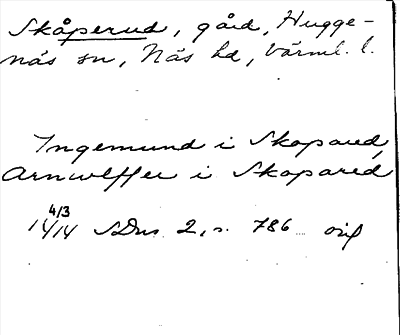 Skåperud, gård, Hugge-
näs sn, Näs hd, Värml. l.
Ingemund i Skopared,
Arnwlffer i Skopared
4/3
1414 SDns 2, s. 786 orig